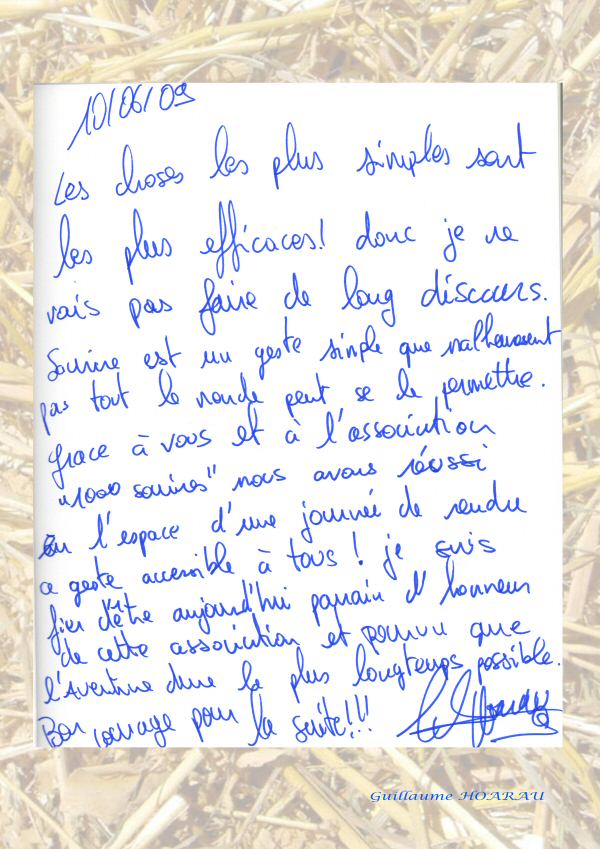 10/06/09
Les choses les plus simples sont
les plus efficaces! donc je ne
vais pas faire de long discours.
Sourire est un geste simple que malheureusement
pas tout le monde peut se le permettre.
grace à vous et à l'association
"1000 sourires" nous avons réussi
En l'espace d'une journée de rendre
ce geste accessible à tous! je suis
fier d'être aujourd'hui parrain d'honneur
de cette association et pourvu que
l'Aventure dure le plus longtemps possible.
Bon courage pour la suite!!!
Guillaume HOARAU